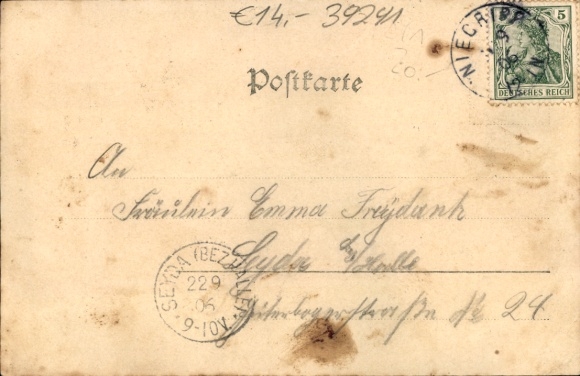 €14,- 39241
20.-
Postkarte
NIEGRIPP
5
DEUTSCHES REICH
An
Fräulein Emma Freydank
Seyda b/Halle
Jüterbogerstraße № 24
SEYDA (BEZ. HALLE)
229
06
6-10V